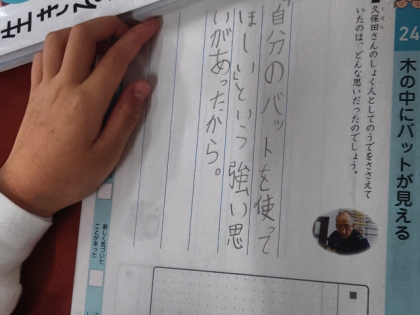 24
木の中にバットが見える
■久保田さんのしょく人としてのうでをささえて
いたのは、どんな思いだったのでしょう。
「自分のバットを使って
ほしい」という強い思
いがあったから。
新しく気づいた
ことがあった